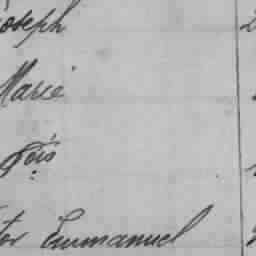 Joseph
Marie
Fois
tor Emmanuel